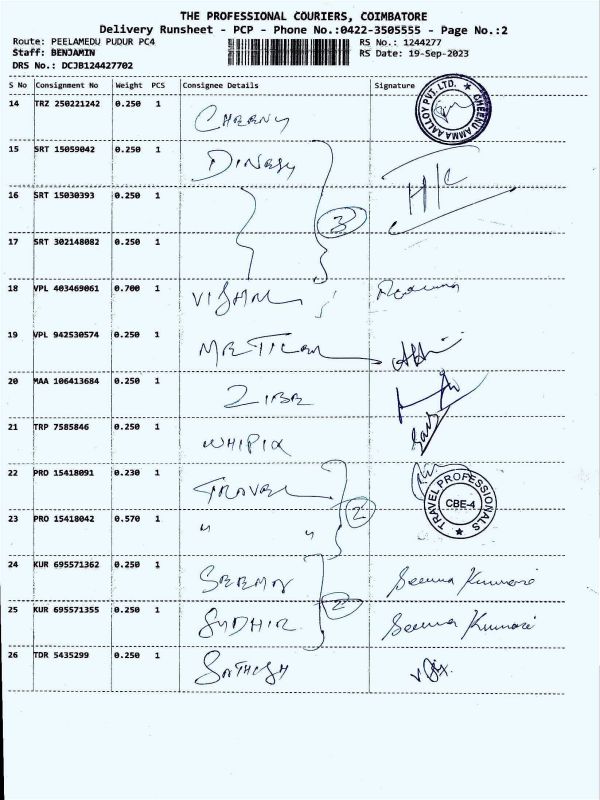 THE PROFESSIONAL COURIERS, COIMBATORE
Delivery Runsheet - PCP - Phone No.:0422-3505555 - Page No.:2
Route: PEELAMEDU PUDUR PC4 RS No.: 1244277
Staff: BENJAMIN RS Date: 19-Sep-2023
DRS No.: DCJB124427702
S No Consignment No Weight PCS Consignee Details Signature
14 TRZ 250221242 0.250 1
CHEENU AMMA AALLOY PVT. LTD.
15 SRT 15059042 0.250 1 DINESH
H/C
16 SRT 15030393 0.250 1
3
17 SRT 302148082 0.250 1
18 VPL 403469061 0.700 1 VISHAL
19 VPL 942530574 0.250 1
20 MAA 106413684 0.250 1
21 TRP 7585846 0.250 1
22 PRO 15418091 0.230 1 TRAVEL
TRAVEL PROFESSIONALS
CBE-4
2
23 PRO 15418042 0.570 1 " "
24 KUR 695571362 0.250 1 SEEMA Seema Kumari
2
25 KUR 695571355 0.250 1 SUDHIR Seema Kumari
26 TDR 5435299 0.250 1 SATHISH